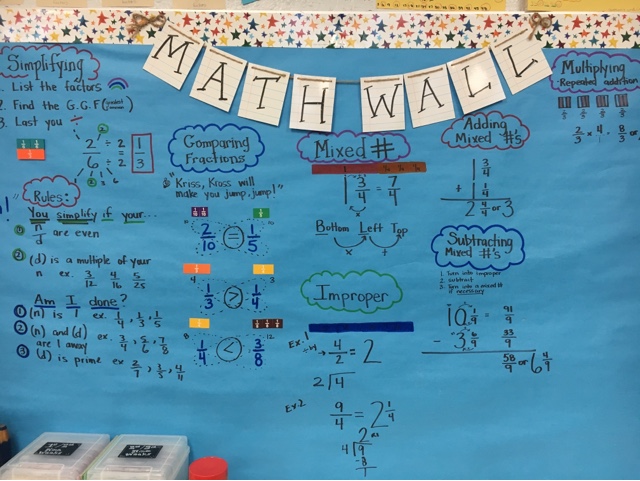 MATH WALL
Simplifying
1. List the factors
2. Find the G.G.F
3. Last you ÷
2 ÷ 2 = 1
6 ÷ 2 = 3
Rules:
You simplify if your...
① n/d are even
② (d) is a multiple of your
n ex. 3/12 4/16 5/25
Am I done?
① (n) is 1 ex. 1/4, 1/3, 1/5
② (n) and (d) ex. 3/4, 5/6, 7/8
are 1 away
③ (d) is prime ex 2/7, 1/3,
Comparing
Fractions
"Kriss, Kross will
make you jump, jump!"
2/10 = 1/5
1/3 > 1/4
1/4 < 3/8
Mixed #
1 3/4 = 7/4
Bottom Left Top
x +
Improper
Ex. 1
4/2 = 2
2)4
Ex. 2
9/4 = 2 1/4
2
4)9
-8
1
Adding
Mixed #'s
1 3/4
+ 1 1/4
2 4/4 or 3
Subtracting
Mixed #'s
1. Turn into improper
2. subtract
3. Turn into a mixed #
if necessary
10 1/9 = 91/9
- 3 6/9 33/9
58/9 or 6 4/9
Multiplying
Repeated addition
2/3 x 4/1 = 8/3 or